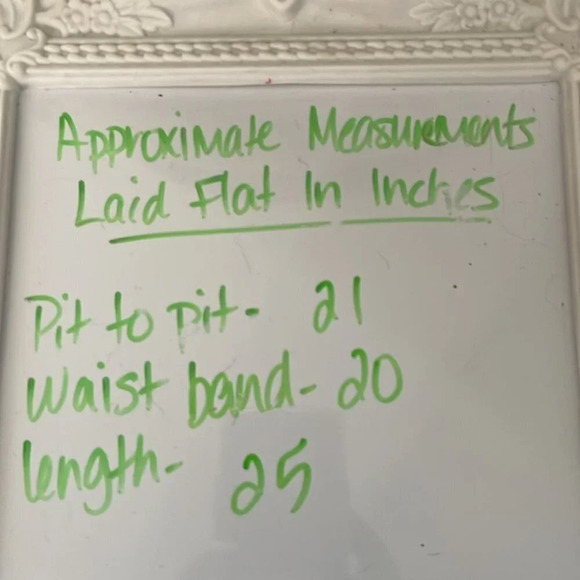 Approximate Measurements
Laid Flat In Inches
Pit to pit- 21
Waist band- 20
length- 25